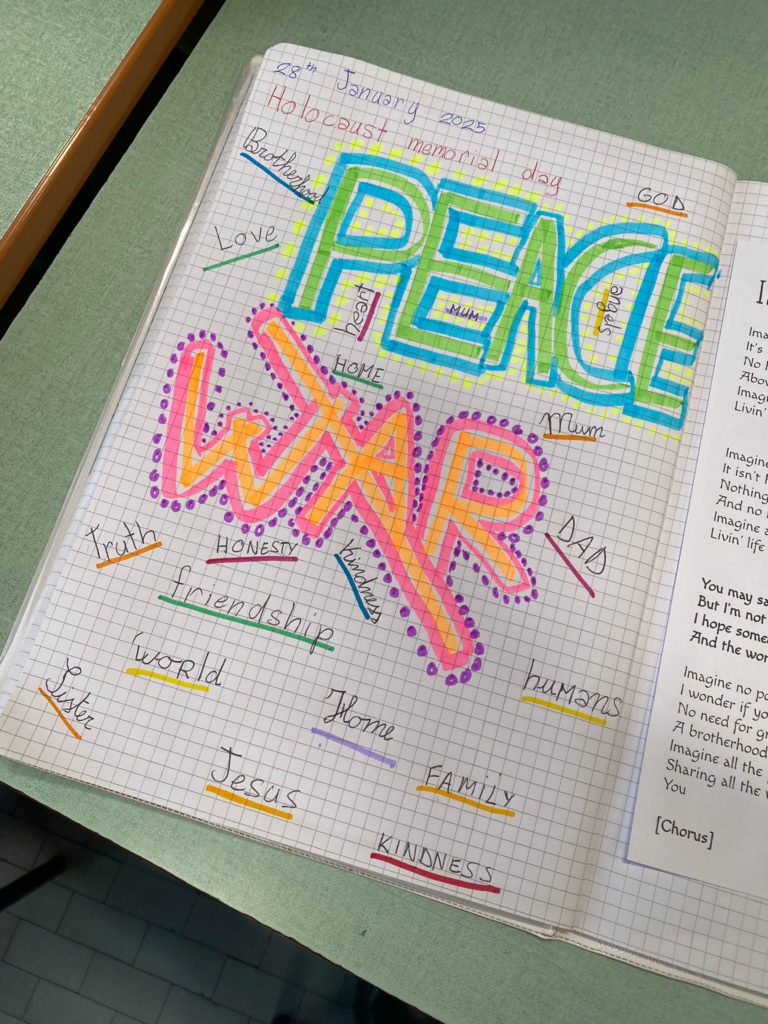 28th January 2025
Holocaust memorial day
Brotherhood
GOD
Love
PEACE
heart
MUM
angels
HOME
WAR
Mum
Truth
HONESTY
Kindness
DAD
friendship
world
humans
Sister
Home
Jesus
FAMILY
KINDNESS
Ima
It's
No
Abov
Imag
Livin'
Imagine
It isn't
Nothing
And no
Imagine
Livin' life
You may sa
But I'm not
I hope some
And the wor
Imagine no po
I wonder if yo
No need for gr
A brotherhood
Imagine all the
Sharing all the w
You
[Chorus]